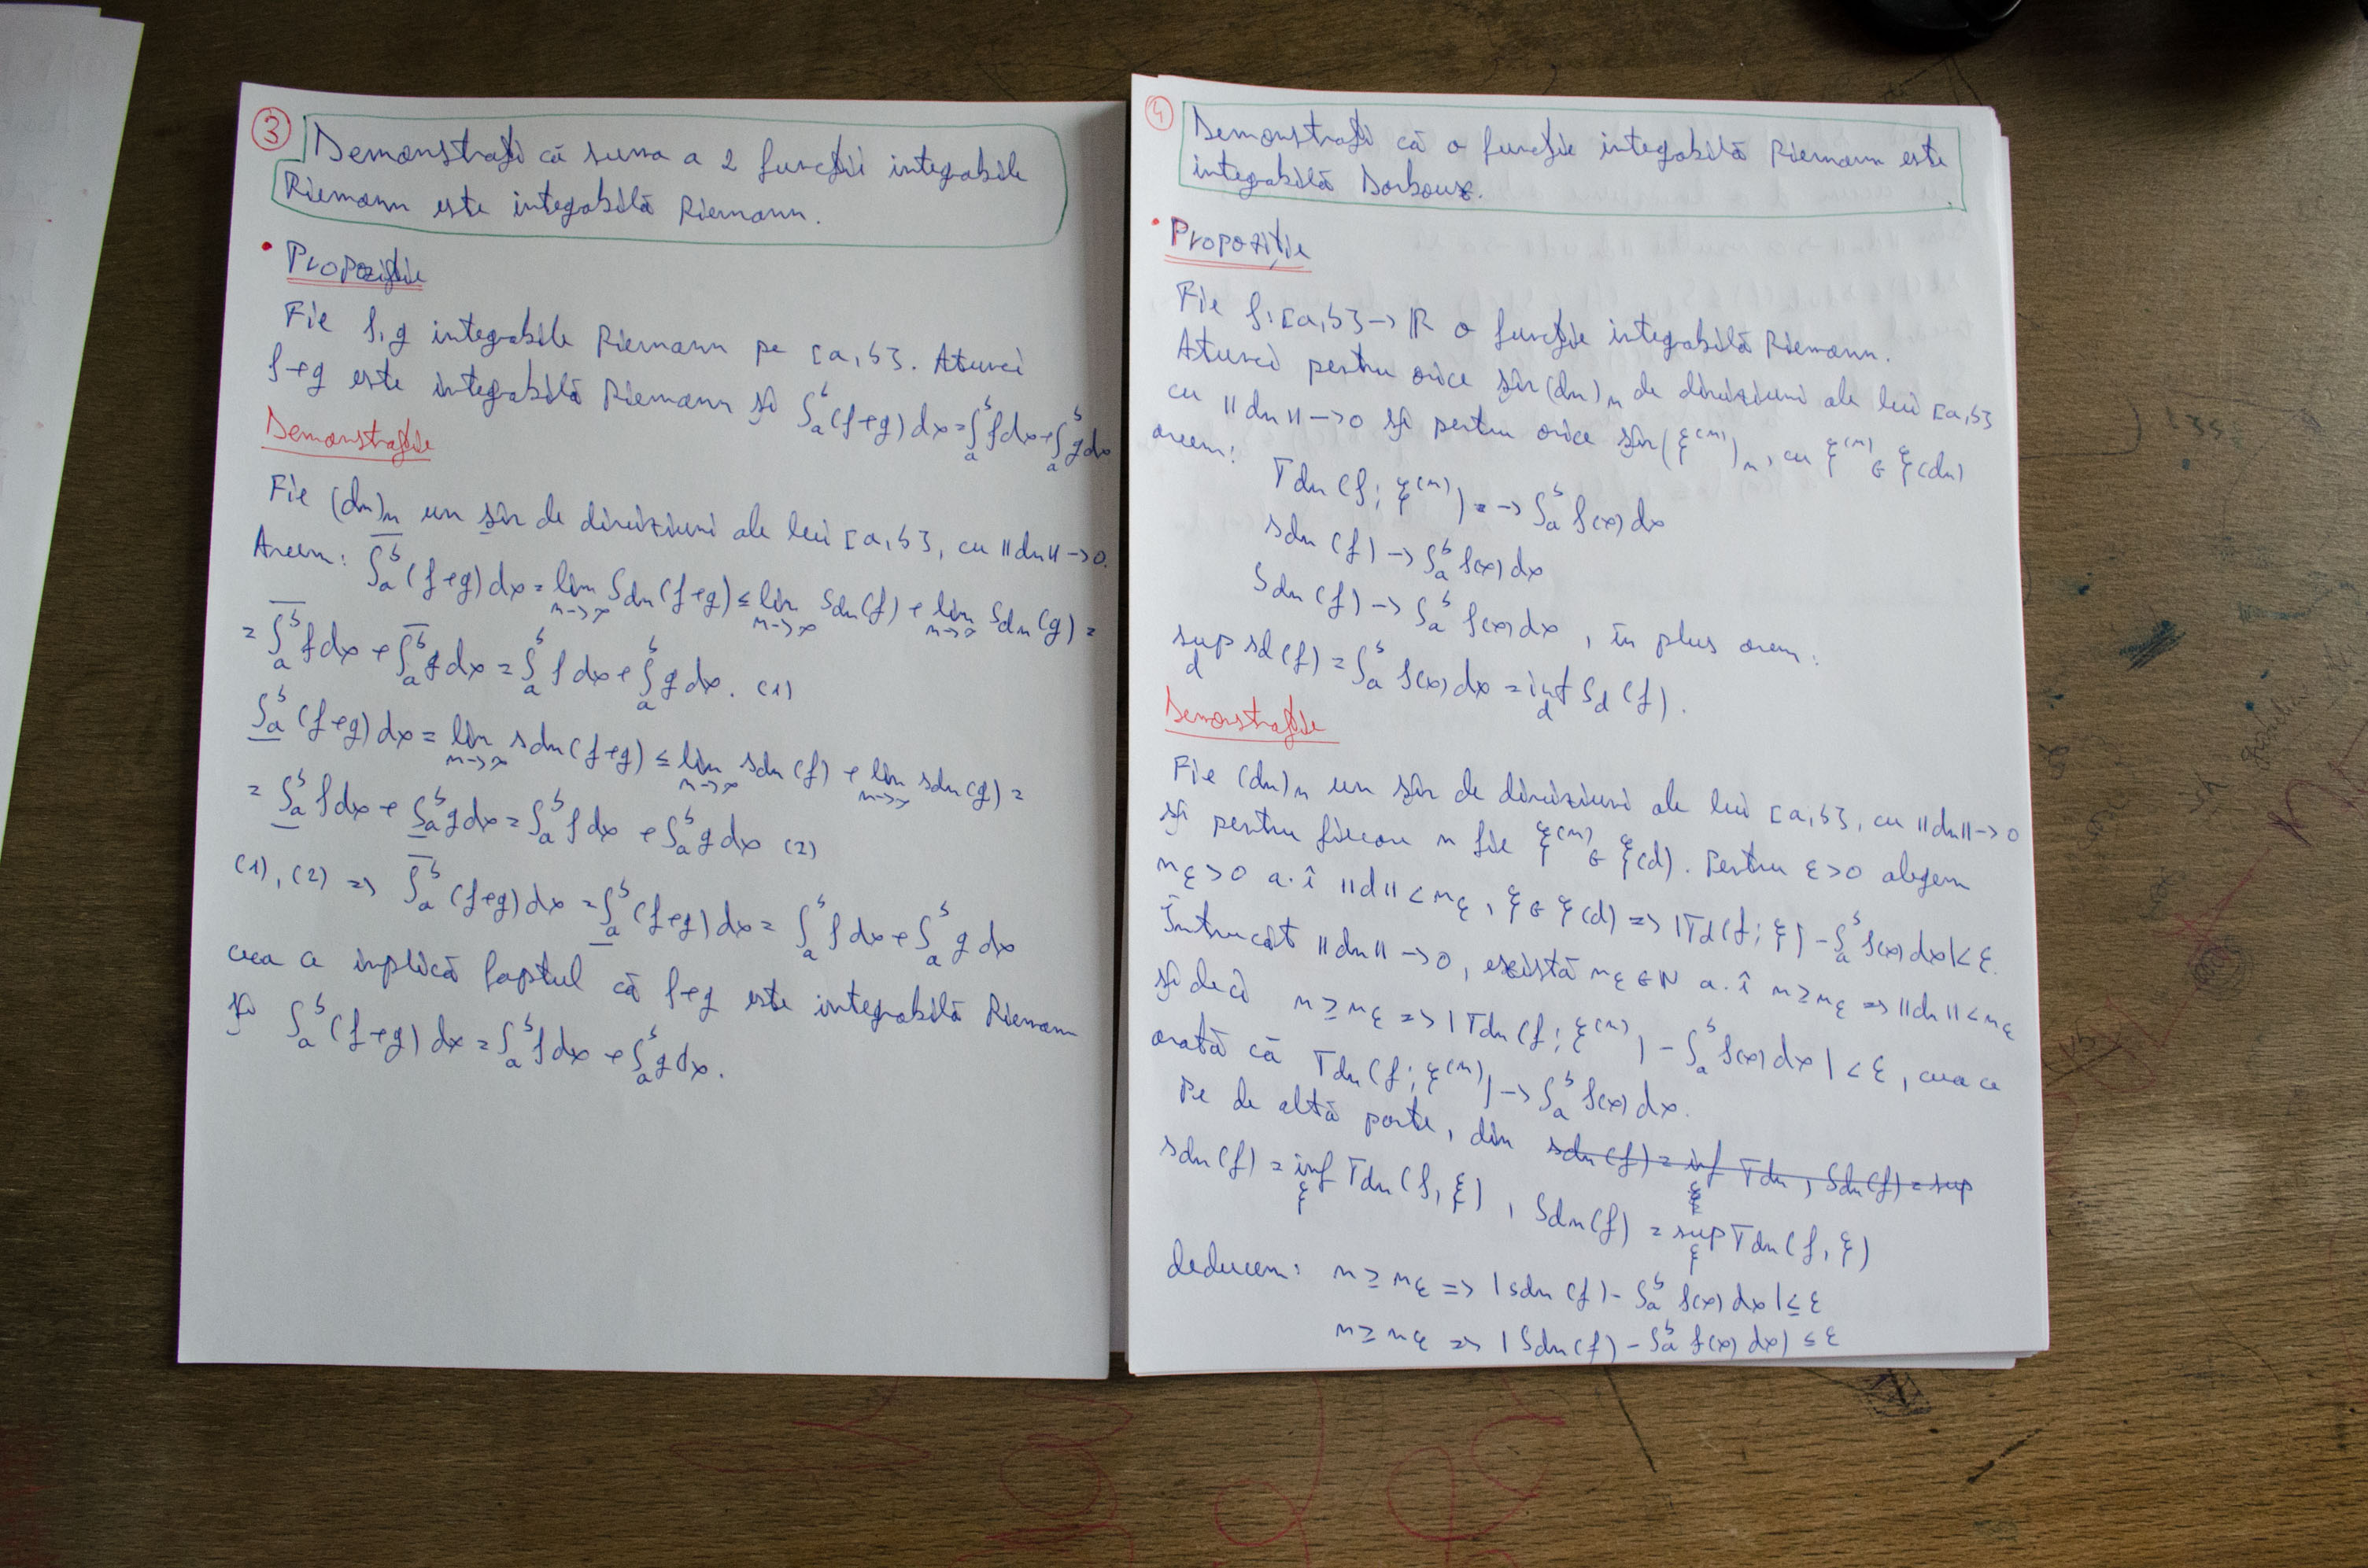 ③ Demonstrați că suma a 2 funcții integrabile
Riemann este integrabilă Riemann.
• Propoziție
Fie f,g integrabile Riemann pe [a,b]. Atunci
f+g este integrabilă Riemann și ∫_a^b (f+g)dx = ∫_a^b fdx + ∫_a^b gdx
Demonstrație
Fie (dn)n un șir de diviziuni ale lui [a,b], cu ||dn||→0.
Avem: ∫̅_a^b (f+g)dx = lim_{n→∞} Sdn(f+g) ≤ lim_{n→∞} Sdn(f) + lim_{n→∞} Sdn(g) =
= ∫̅_a^b fdx + ∫̅_a^b gdx = ∫_a^b fdx + ∫_a^b gdx. (1)
∫̲_a^b (f+g)dx = lim_{n→∞} sdn(f+g) ≤ lim_{n→∞} sdn(f) + lim_{n→∞} sdn(g) =
= ∫̲_a^b fdx + ∫̲_a^b gdx = ∫_a^b fdx + ∫_a^b gdx (2)
(1), (2) => ∫̅_a^b (f+g)dx = ∫̲_a^b (f+g)dx = ∫_a^b fdx + ∫_a^b gdx
ceea ce implică faptul că f+g este integrabilă Riemann
și ∫_a^b (f+g)dx = ∫_a^b fdx + ∫_a^b gdx.
④ Demonstrați că o funcție integrabilă Riemann este
integrabilă Darboux.
• Propoziție
Fie f:[a,b]→ℝ o funcție integrabilă Riemann.
Atunci pentru orice șir (dn)n de diviziuni ale lui [a,b]
cu ||dn||→0 și pentru orice șir (ξ^(n))n, cu ξ^(n) ∈ ξ(dn)
avem:
Tdn(f; ξ^(n)) → ∫_a^b f(x)dx
sdn(f) → ∫_a^b f(x)dx
Sdn(f) → ∫_a^b f(x)dx, în plus avem:
sup_d sd(f) = ∫_a^b f(x)dx = inf_d Sd(f).
Demonstrație
Fie (dn)n un șir de diviziuni ale lui [a,b], cu ||dn||→0
și pentru fiecare n fie ξ^(n) ∈ ξ(d). Pentru ε>0 alegem
nε>0 a.î ||d||<nε, ξ∈ξ(d) => |Td(f; ξ) - ∫_a^b f(x)dx|<ε.
Întrucât ||dn||→0, există nε∈N a.î n≥nε => ||dn||<nε
și deci n≥nε => |Tdn(f; ξ^(n)) - ∫_a^b f(x)dx|<ε, ceea ce
arată că Tdn(f; ξ^(n)) → ∫_a^b f(x)dx.
Pe de altă parte, din sdn(f) = inf_ξ Tdn, Sdn(f) = sup
sdn(f) = inf_ξ Tdn(f, ξ), Sdn(f) = sup_ξ Tdn(f, ξ)
deducem: n≥nε => |sdn(f) - ∫_a^b f(x)dx|≤ε
n≥nε => |Sdn(f) - ∫_a^b f(x)dx|≤ε